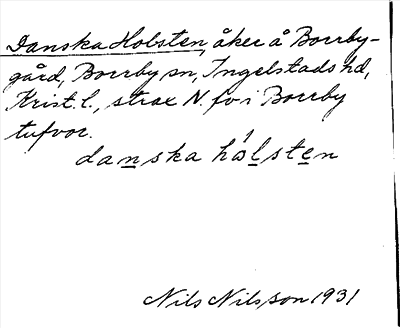 Danska Holsten, åker å Borrby-
gård, Borrby sn, Ingelstads hd,
Krist. l., strax N. fr i Borrby
tufvor.
danska hòlsten
Nils Nilsson 1931